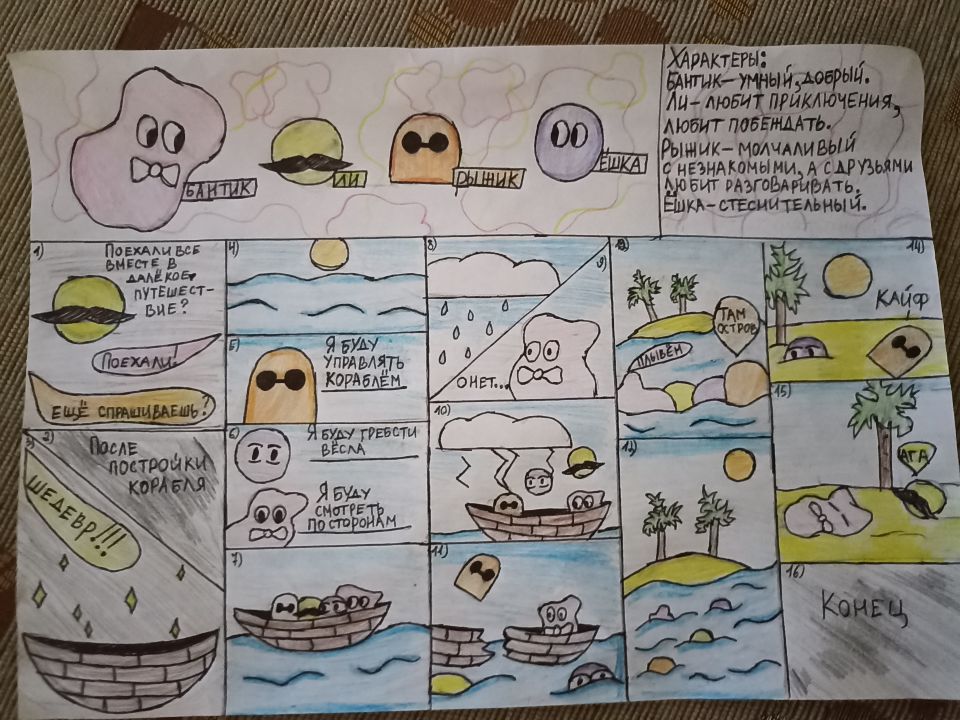 БАНТИК
ЛИ
РЫЖИК
ЁШКА
ХАРАКТЕРЫ:
БАНТИК – УМНЫЙ, ДОБРЫЙ.
ЛИ – ЛЮБИТ ПРИКЛЮЧЕНИЯ,
ЛЮБИТ ПОБЕЖДАТЬ.
РЫЖИК – МОЛЧАЛИВЫЙ
С НЕЗНАКОМЫМИ, А С ДРУЗЬЯМИ
ЛЮБИТ РАЗГОВАРИВАТЬ.
ЁШКА – СТЕСНИТЕЛЬНЫЙ.
1)
ПОЕХАЛИ ВСЕ
ВМЕСТЕ В
ДАЛЁКОЕ
ПУТЕШЕСТ-
ВИЕ?
ПОЕХАЛИ!
ЕЩЁ СПРАШИВАЕШЬ?
3) 2)
ПОСЛЕ
ПОСТРОЙКИ
КОРАБЛЯ
ШЕДЕВР!!!
4)
5)
Я БУДУ
УПРАВЛЯТЬ
КОРАБЛЁМ
6)
Я БУДУ ГРЕБСТИ
ВЁСЛА
Я БУДУ
СМОТРЕТЬ
ПО СТОРОНАМ
7)
8)
9)
О НЕТ...
10)
11)
12)
ТАМ
ОСТРОВ
ПЛЫВЁМ
13)
14)
КАЙФ
15)
АГА
16)
КОНЕЦ